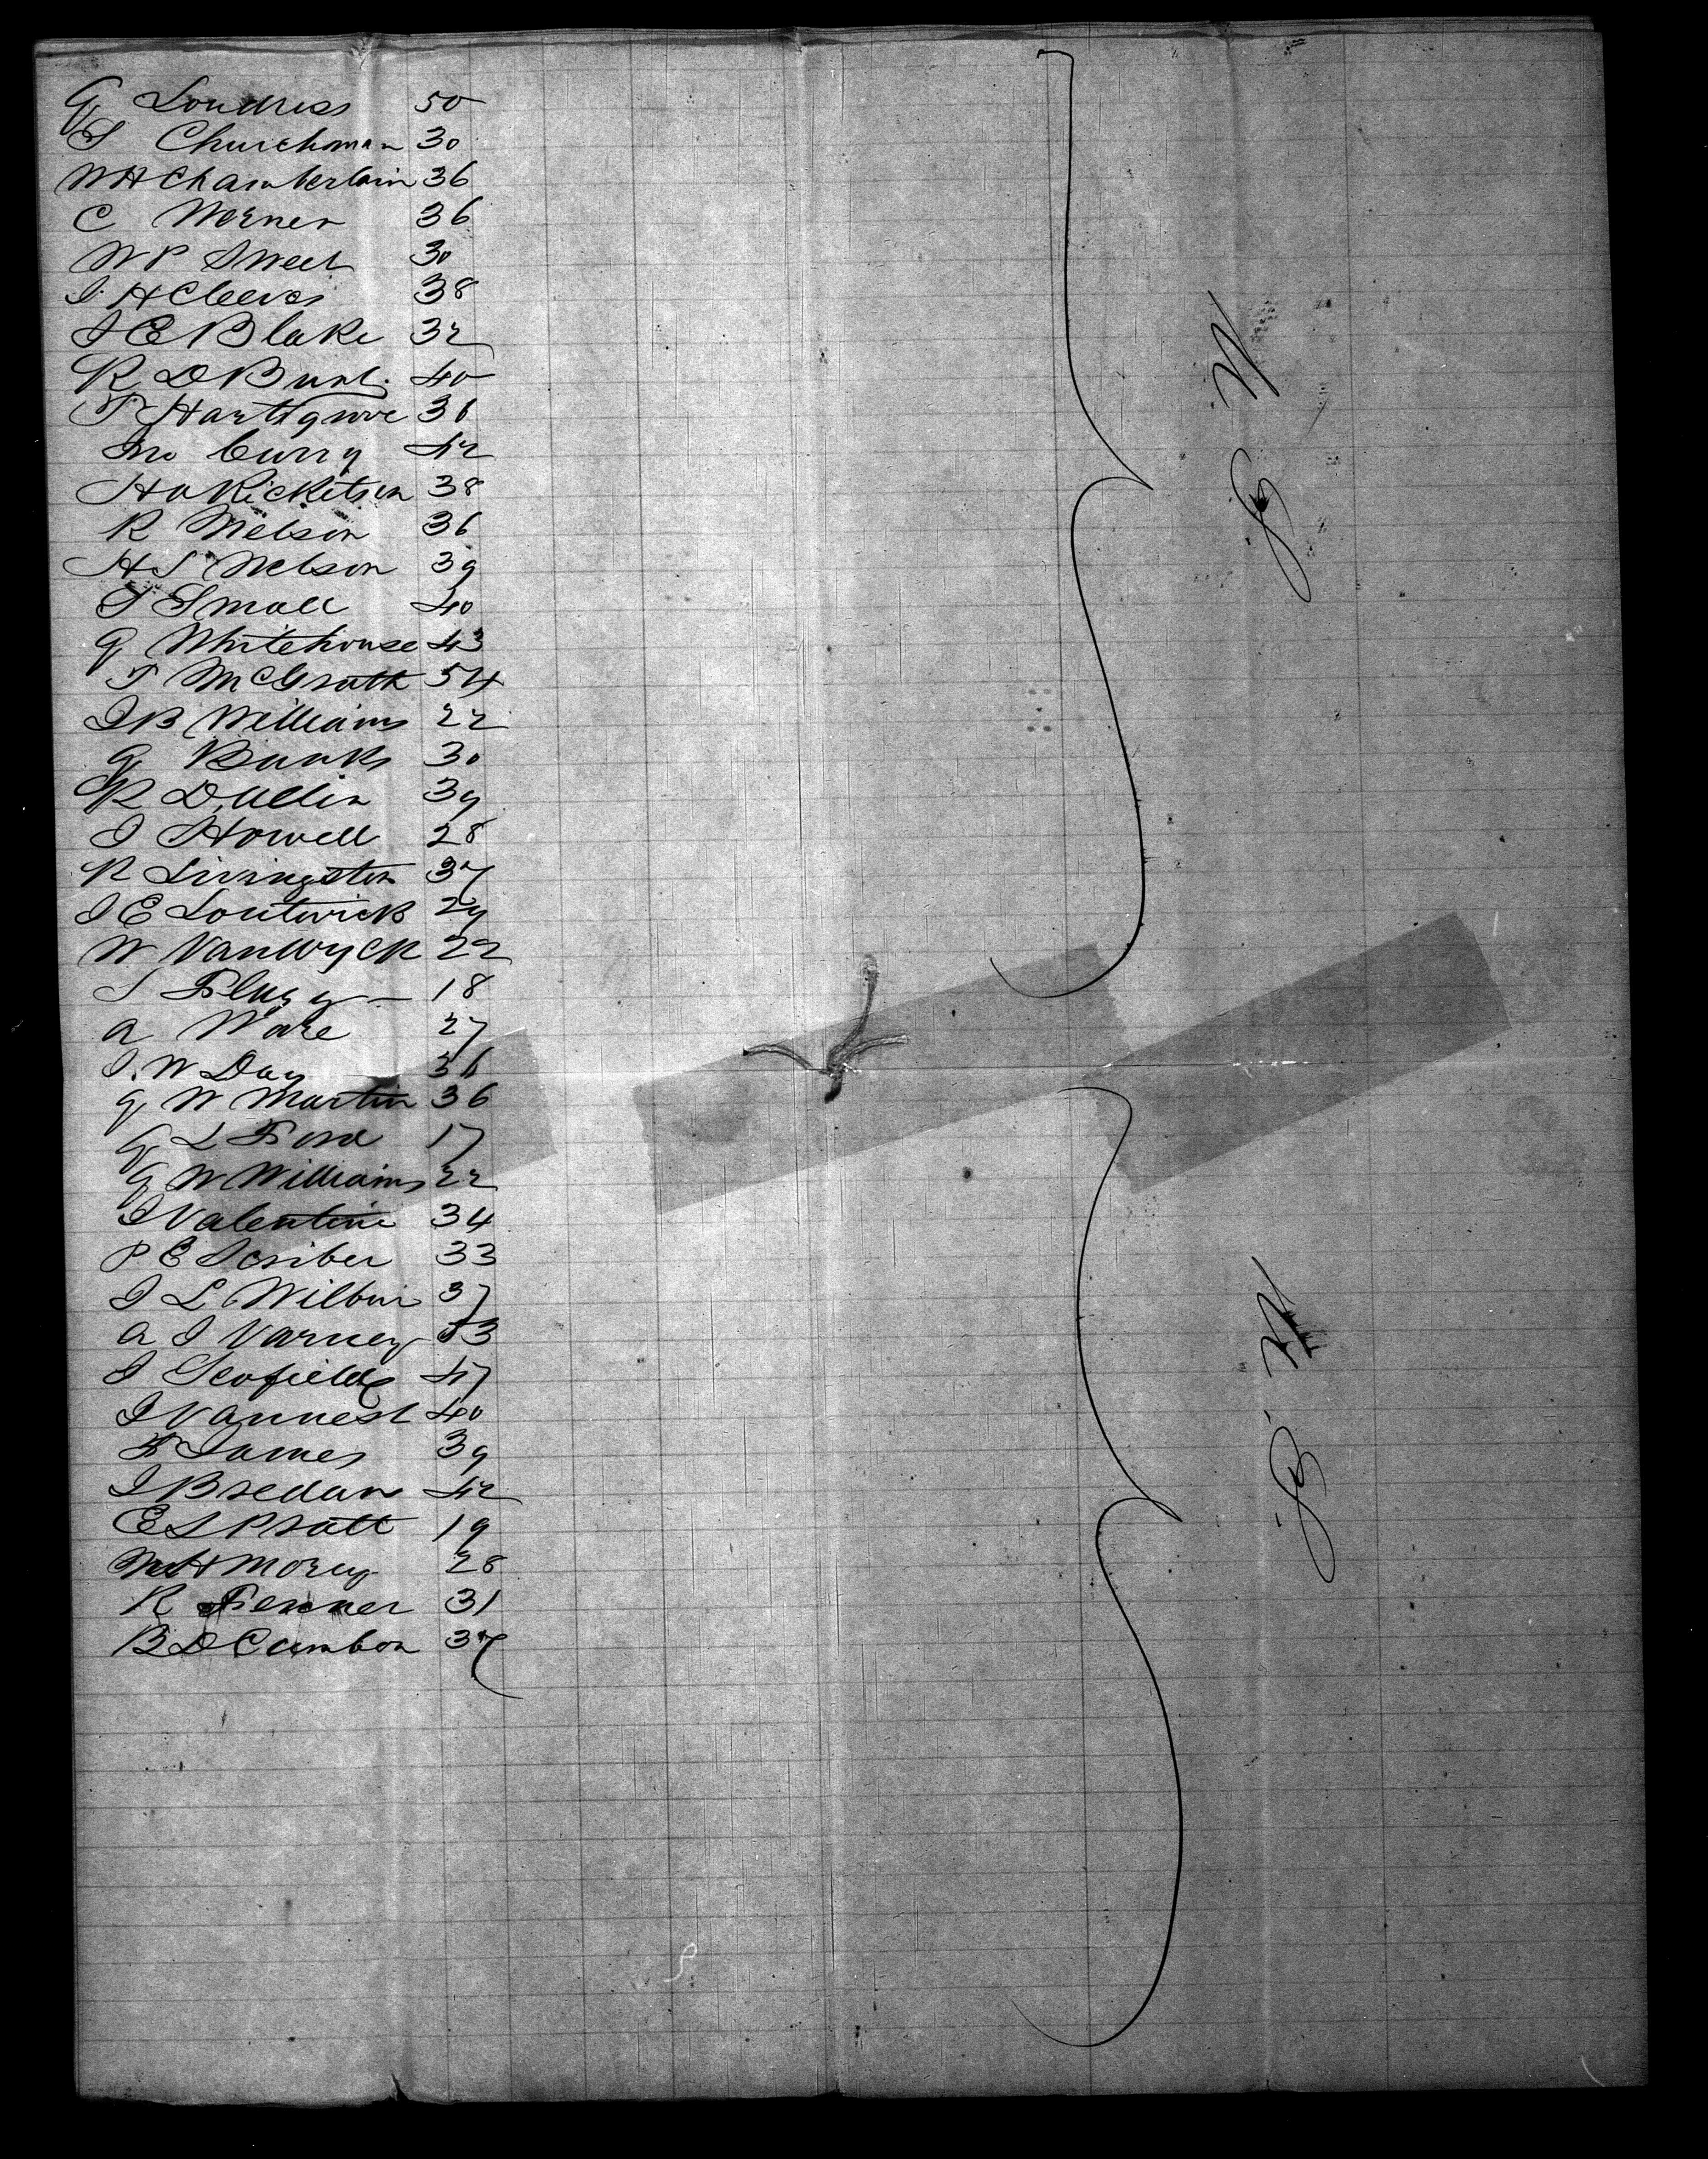 G Loudress 50
S Churchman 30
W H Chamberlain 36
C Werner 36
W P Sweet 30
J. H Cleeves 38
J E Blake 32
R D Bunt. 40
T Hartgrove 36
Jno Curry 42
H a Ricketson 38
R Nelson 36
H S Nelson 39
J Small 40
G Whitehouse 43
T McGrath 54
J B Williams 22
G Banks 30
R Dullin 39
J Howell 28
R Livingston 37
J E Southwick 29
W VanWyck 22
S Flugg 18
A Ware 27
J. W Day 36
G W Martin 36
G L Ford 17
G W Williams 22
J Valentine 34
P E Scriber 33
J L Wilbur 37
A J Varney 53
J Scofield 47
J Vannest 40
F James 39
J Bredan 42
E L Pratt 19
W H Morey 28
R Fenner 31
B D Cambon 37
N. B
N. B